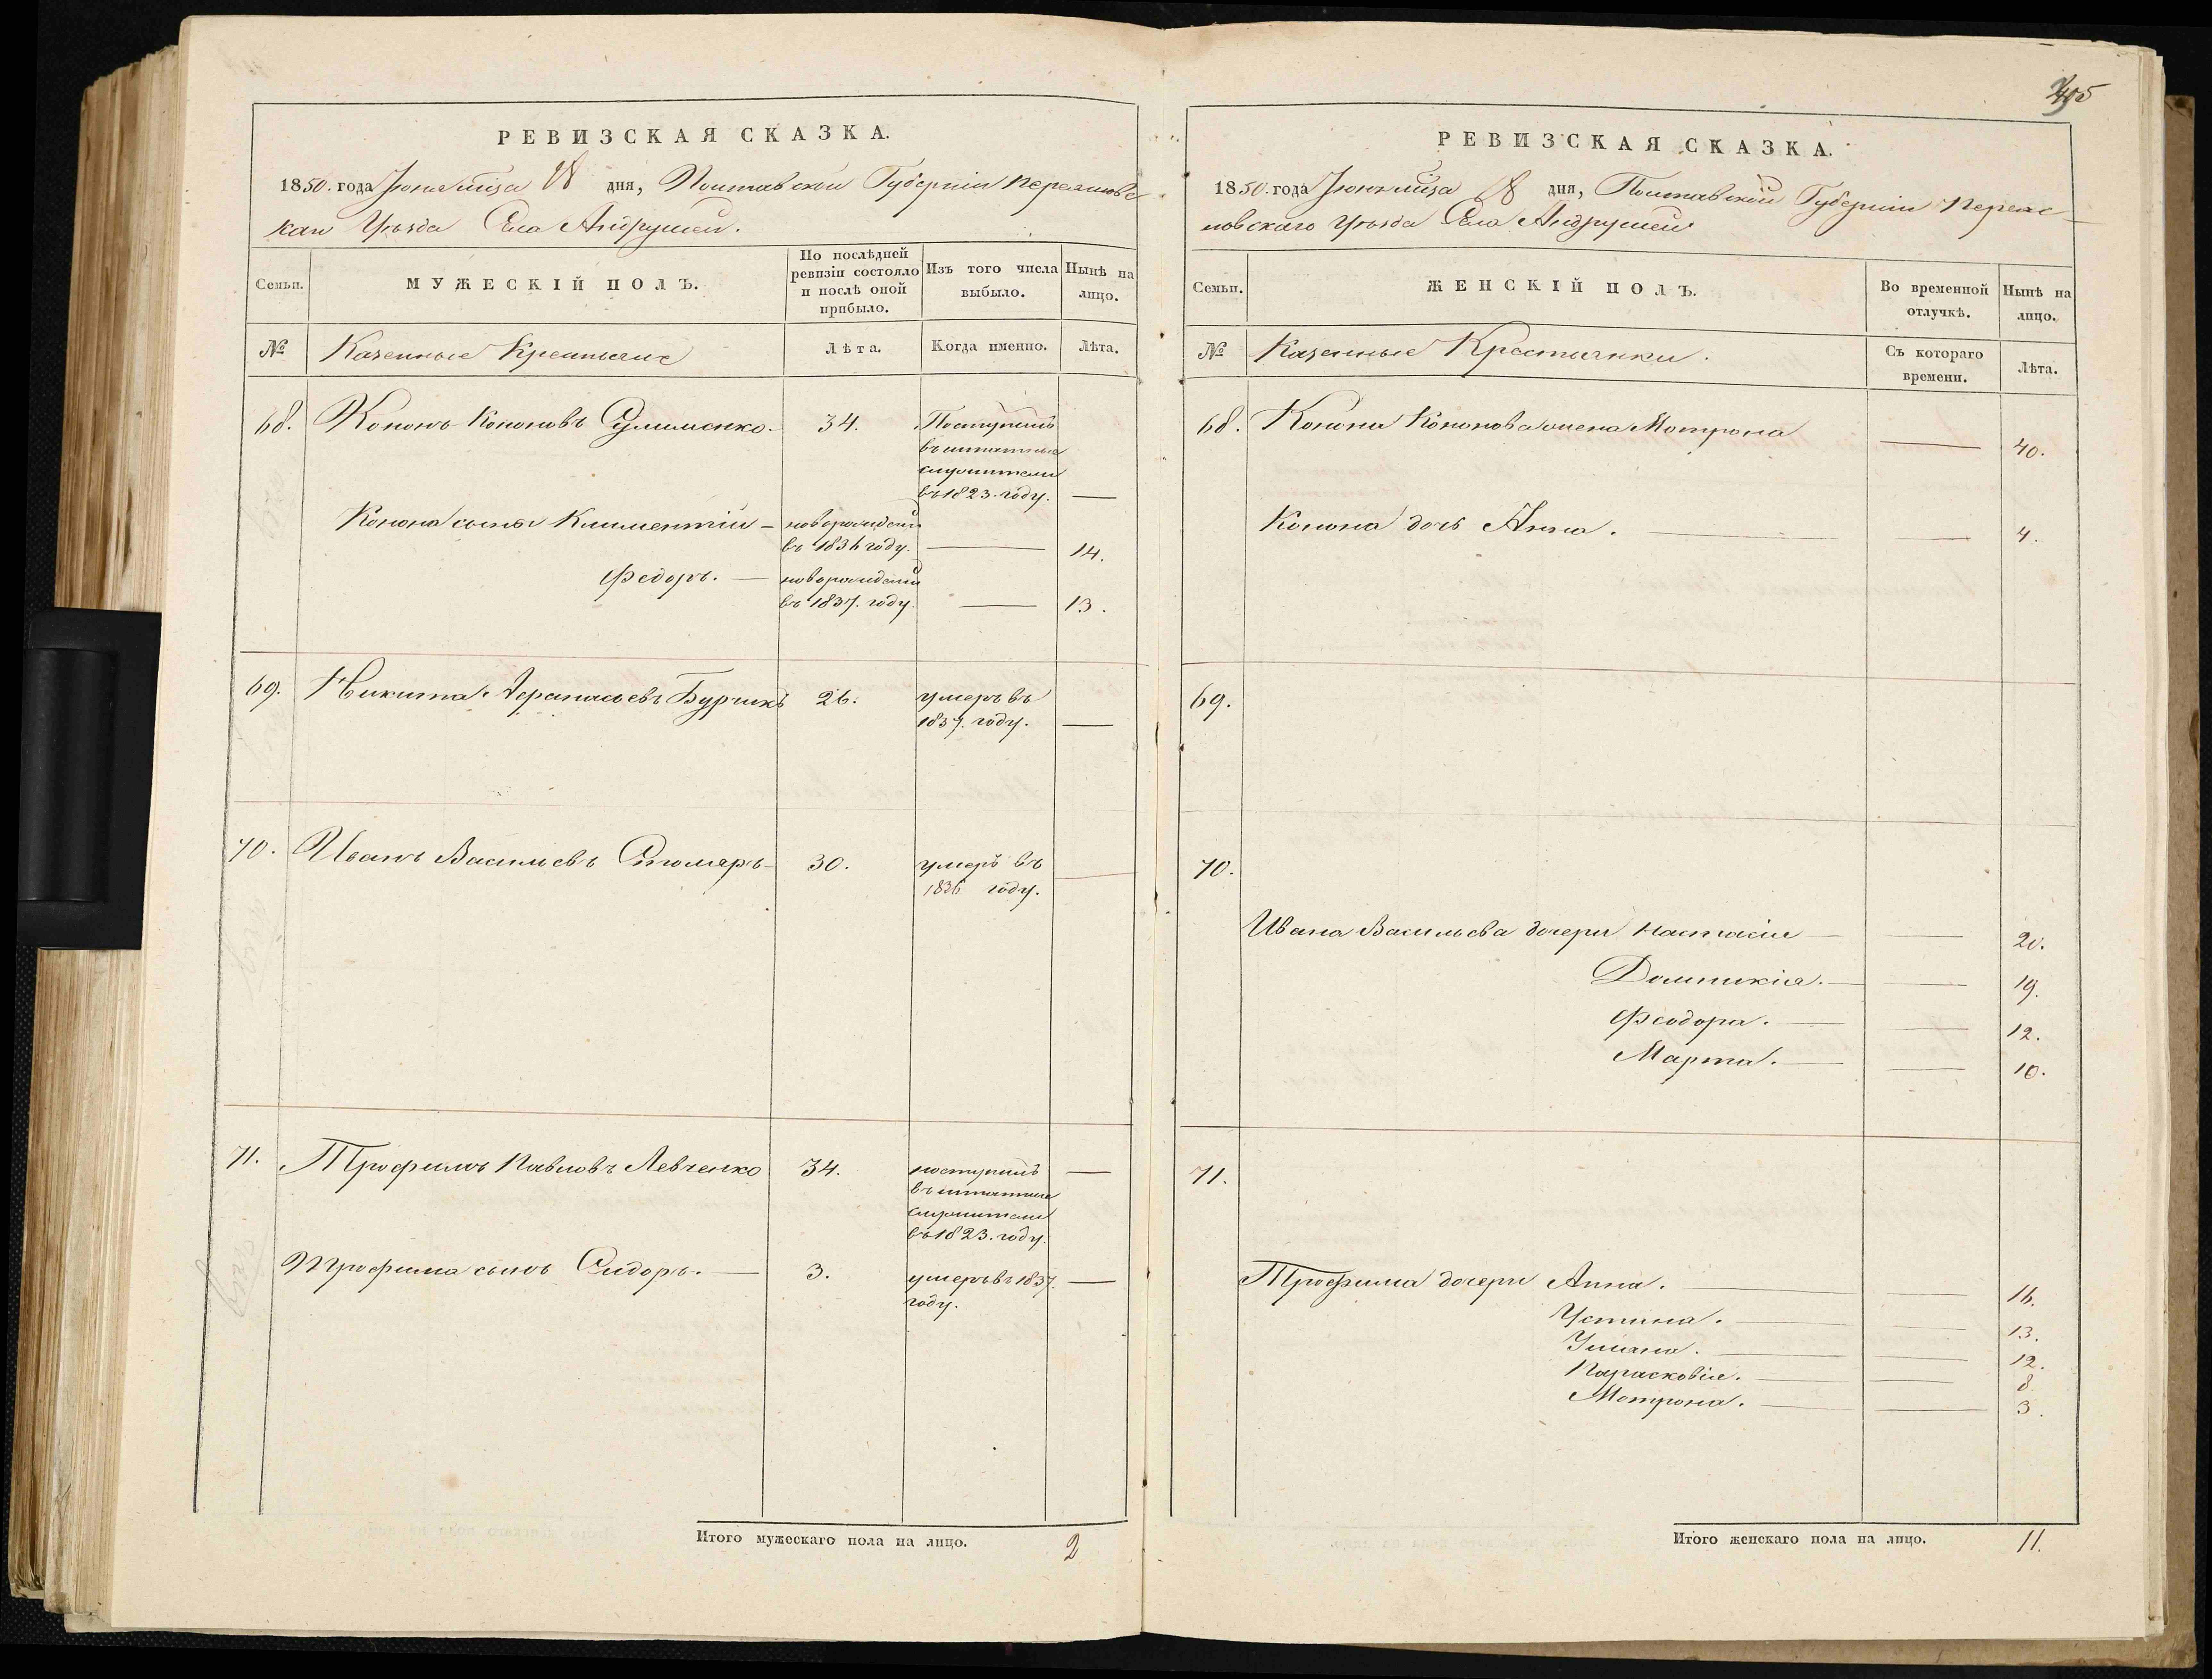 РЕВИЗСКАЯ СКАЗКА.
1850. года Іюня мѣца 18 дня, Полтавской Губерніи Переяловс
кая Уѣзда Села Андрушей.
Семьи.
МУЖЕСКІЙ ПОЛЪ.
По послѣдней ревизіи состояло и послѣ оной прибыло.
Изъ того числа выбыло.
Нынѣ на лицо.
№
Казенные Крестьяне
Лѣта.
Когда именно.
Лѣта.
68. Кононъ Кононовъ Сулименко. 34. Поступилъ
въ штатные
служители
въ 1823. году. —
Конона сыны Климентій — новорожденъ
въ 1836 году. — 14.
Федоръ. — новорожденъ
въ 1837. году. — 13.
69. Никита Аѳанасьевъ Бурчикъ 26. умеръ въ
1837. году. —
70. Иванъ Васильевъ Столяръ — 30. умеръ въ
1836 году. —
71. Трофимъ Павловъ Левченко 34. поступилъ —
въ штатные
служители
въ 1823. году.
Трофима сынъ Сидоръ. — 3. умеръ въ 1837. —
году.
Итого мужескаго пола на лицо. 2
45
РЕВИЗСКАЯ СКАЗКА.
1850. года Іюня мѣца 18 дня, Полтавской Губерніи Переяс
ловскаго Уѣзда Села Андрушей
Семьи.
ЖЕНСКІЙ ПОЛЪ.
Во временной отлучкѣ.
Нынѣ на лицо.
№
Казенные Крестьянки.
Съ котораго времени.
Лѣта.
68. Конона Кононова жена Мотрона — 40.
Конона дочь Анна. — — 4.
69.
70.
Ивана Васильева дочери Настасія — — 20.
Домникія. — — 19.
Феодора. — — 12.
Марта. — — 10.
71.
Трофима дочери Анна. — — 16.
Устина. — — 13.
Уліана. — — 12.
Парасковія. — — 8.
Мотрона. — — 3.
Итого женскаго пола на лицо. 11.